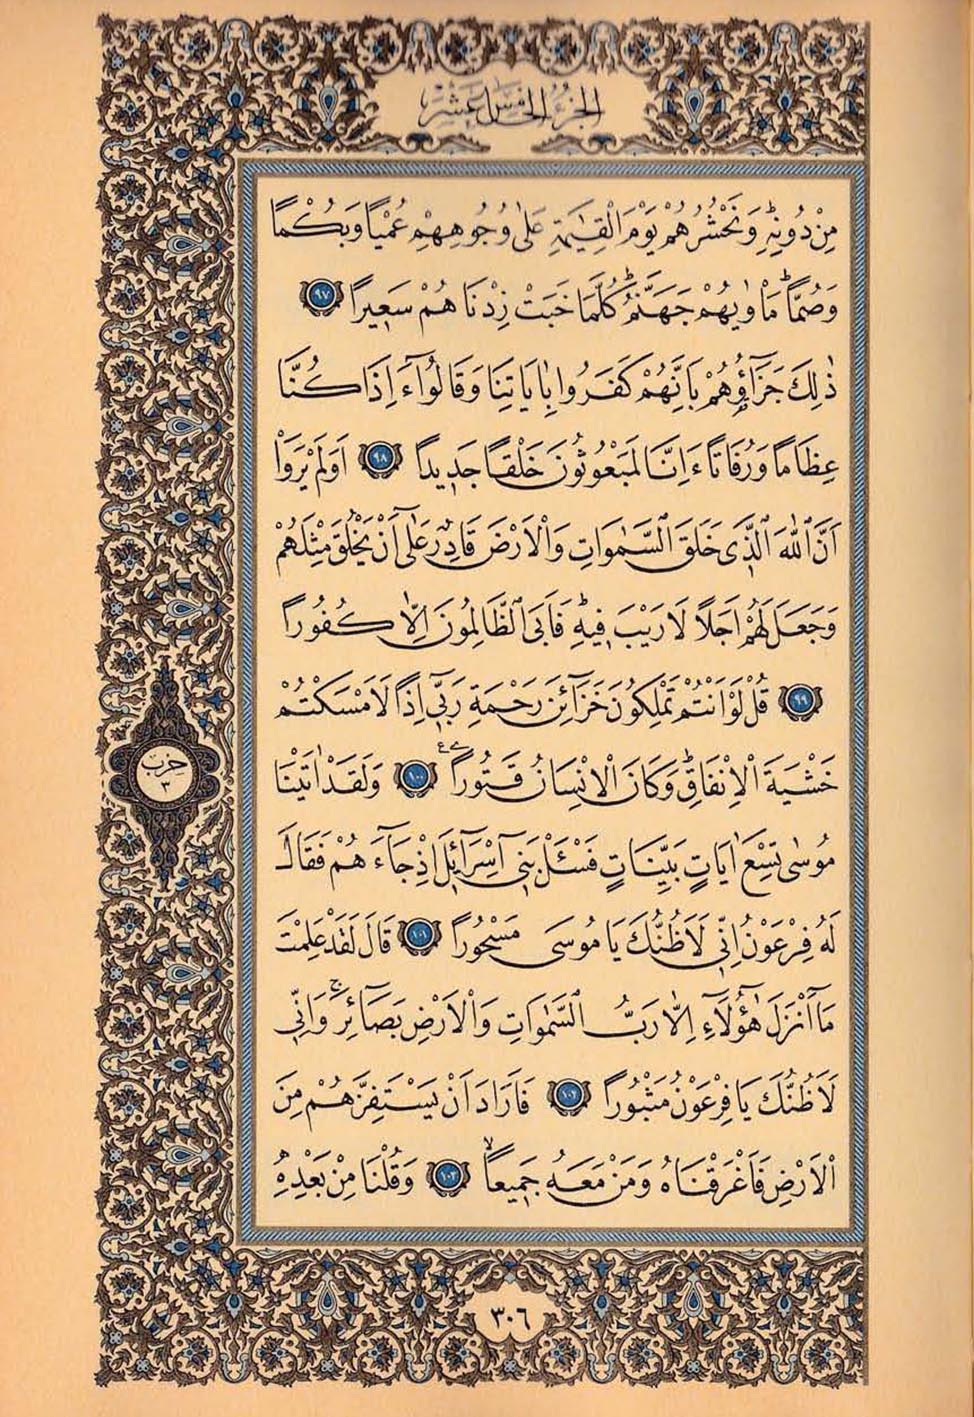 الجزء الخامس عشر
مِنْ دُونِهِۜ وَنَحْشُرُهُمْ يَوْمَ الْقِيٰمَةِ عَلٰى وُجُوهِهِمْ عُمْيًا وَبُكْمًا
وَصُمًّاۜ مَاْوٰيهُمْ جَهَنَّمُۜ كُلَّمَا خَبَتْ زِدْنَاهُمْ سَعِيرًا ٩٧
ذٰلِكَ جَزَٓاؤُ۬هُمْ بِاَنَّهُمْ كَفَرُوا بِاٰيَاتِنَا وَقَالُٓوا ءَاِذَا كُنَّا
عِظَامًا وَرُفَاتًا ءَاِنَّا لَمَبْعُوثُونَ خَلْقًا جَدِيدًا ٩٨ اَوَلَمْ يَرَوْا
اَنَّ اللّٰهَ الَّذِي خَلَقَ السَّمٰوَاتِ وَالْاَرْضَ قَادِرٌ عَلٰٓى اَنْ يَخْلُقَ مِثْلَهُمْ
وَجَعَلَ لَهُمْ اَجَلًا لَا رَيْبَ فِيهِۜ فَاَبَى الظَّالِمُونَ اِلَّا كُفُورًا
٩٩ قُلْ لَوْ اَنْتُمْ تَمْلِكُونَ خَزَٓائِنَ رَحْمَةِ رَبِّٓي اِذًا لَاَمْسَكْتُمْ
خَشْيَةَ الْاِنْفَاقِۜ وَكَانَ الْاِنْسَانُ قَتُورًا ١٠٠ وَلَقَدْ اٰتَيْنَا
مُوسٰى تِسْعَ اٰيَاتٍ بَيِّنَاتٍ فَسْـَٔلْ بَنِٓي اِسْرَٓائِلَ اِذْ جَٓاءَهُمْ فَقَالَ
لَهُ فِرْعَوْنُ اِنِّي لَاَظُنُّكَ يَا مُوسٰى مَسْحُورًا ١٠١ قَالَ لَقَدْ عَلِمْتَ
مَٓا اَنْزَلَ هٰٓؤُلَٓاءِ اِلَّا رَبُّ السَّمٰوَاتِ وَالْاَرْضِ بَصَٓائِرَۚ وَاِنِّي
لَاَظُنُّكَ يَا فِرْعَوْنُ مَثْبُورًا ١٠٢ فَاَرَادَ اَنْ يَسْتَفِزَّهُمْ مِنَ
الْاَرْضِ فَاَغْرَقْنَاهُ وَمَنْ مَعَهُ جَمِيعًاۙ ١٠٣ وَقُلْنَا مِنْ بَعْدِهِ
حزب
٣
٣٠٦